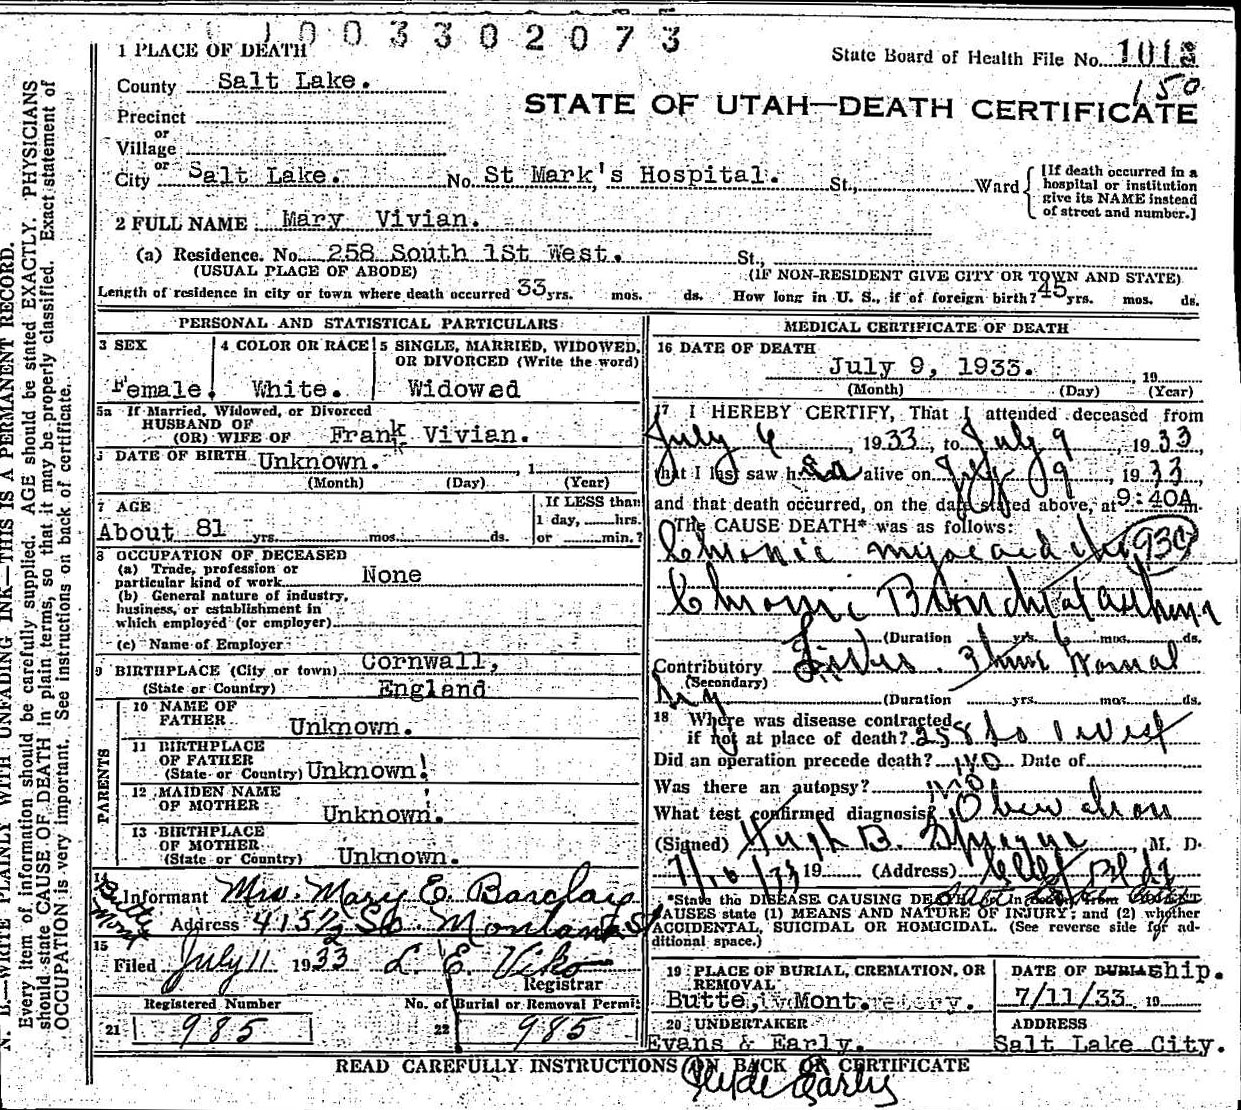 1003302073
1 PLACE OF DEATH
State Board of Health File No. 1018
150
County Salt Lake.
STATE OF UTAH—DEATH CERTIFICATE
Precinct
or
Village
or
City Salt Lake. No. St Mark's Hospital. St., Ward
[If death occurred in a hospital or institution give its NAME instead of street and number.]
2 FULL NAME Mary Vivian.
(a) Residence. No. 258 South 1St West. St.,
(USUAL PLACE OF ABODE) (IF NON-RESIDENT GIVE CITY OR TOWN AND STATE)
Length of residence in city or town where death occurred 33 yrs. mos. ds. How long in U. S., if of foreign birth? 45 yrs. mos. ds.
PERSONAL AND STATISTICAL PARTICULARS
3 SEX
Female.
4 COLOR OR RACE
White.
5 SINGLE, MARRIED, WIDOWED, OR DIVORCED (Write the word)
Widowed
5a If Married, Widowed, or Divorced
HUSBAND OF
(OR) WIFE OF Frank Vivian.
DATE OF BIRTH Unknown. , 1
(Month) (Day) (Year)
7 AGE
About 81 yrs. mos. ds.
If LESS than
1 day, hrs.
or min.?
8 OCCUPATION OF DECEASED
(a) Trade, profession or
particular kind of work None
(b) General nature of industry,
business, or establishment in
which employed (or employer)
(c) Name of Employer
9 BIRTHPLACE (City or town) Cornwall,
(State or Country) England
PARENTS
10 NAME OF
FATHER Unknown.
11 BIRTHPLACE
OF FATHER
(State or Country) Unknown.
12 MAIDEN NAME
OF MOTHER Unknown.
13 BIRTHPLACE
OF MOTHER
(State or Country) Unknown.
14
Informant Mrs. Mary E. Barclay
Butte Mont
Address 415 1/2 So. Montana St
15
Filed July 11 1933 L. E. Viko
Registrar
Registered Number No. of Burial or Removal Permit
21 985 22 985
MEDICAL CERTIFICATE OF DEATH
16 DATE OF DEATH
July 9, 1933. , 19
(Month) (Day) (Year)
17 I HEREBY CERTIFY, That I attended deceased from
July 6, 1933, to July 9, 1933
that I last saw her alive on July 9, 1933,
and that death occurred, on the date stated above, at 9:40A m.
The CAUSE DEATH* was as follows:
Chronic myocarditis 93c
Chronic Bronchial asthma
(Duration yrs. 6 mos. ds.
Contributory
(Secondary)
(Duration yrs. mos. ds.
18 Where was disease contracted
if not at place of death? 258 So 1 West
Did an operation precede death? No Date of
Was there an autopsy? no
What test confirmed diagnosis?
(Signed) Hugh B. Sprague, M. D.
19 (Address) Clift Bldg
*State the DISEASE CAUSING DEATH,
CAUSES state (1) MEANS AND NATURE OF INJURY; and (2) whether
ACCIDENTAL, SUICIDAL OR HOMICIDAL. (See reverse side for ad-
ditional space.)
19 PLACE OF BURIAL, CREMATION, OR
REMOVAL
Butte, Mont.
DATE OF BURIAL ship.
7/11/33 19
20 UNDERTAKER
Evans & Early.
ADDRESS
Salt Lake City.
READ CAREFULLY INSTRUCTIONS ON BACK OF CERTIFICATE
Clyde Early
N. B.—WRITE PLAINLY WITH UNFADING INK—THIS IS A PERMANENT RECORD.
Every item of information should be carefully supplied. AGE should be stated EXACTLY. PHYSICIANS
should state CAUSE OF DEATH in plain terms, so that it may be properly classified. Exact statement of
OCCUPATION is very important. See instructions on back of certificate.